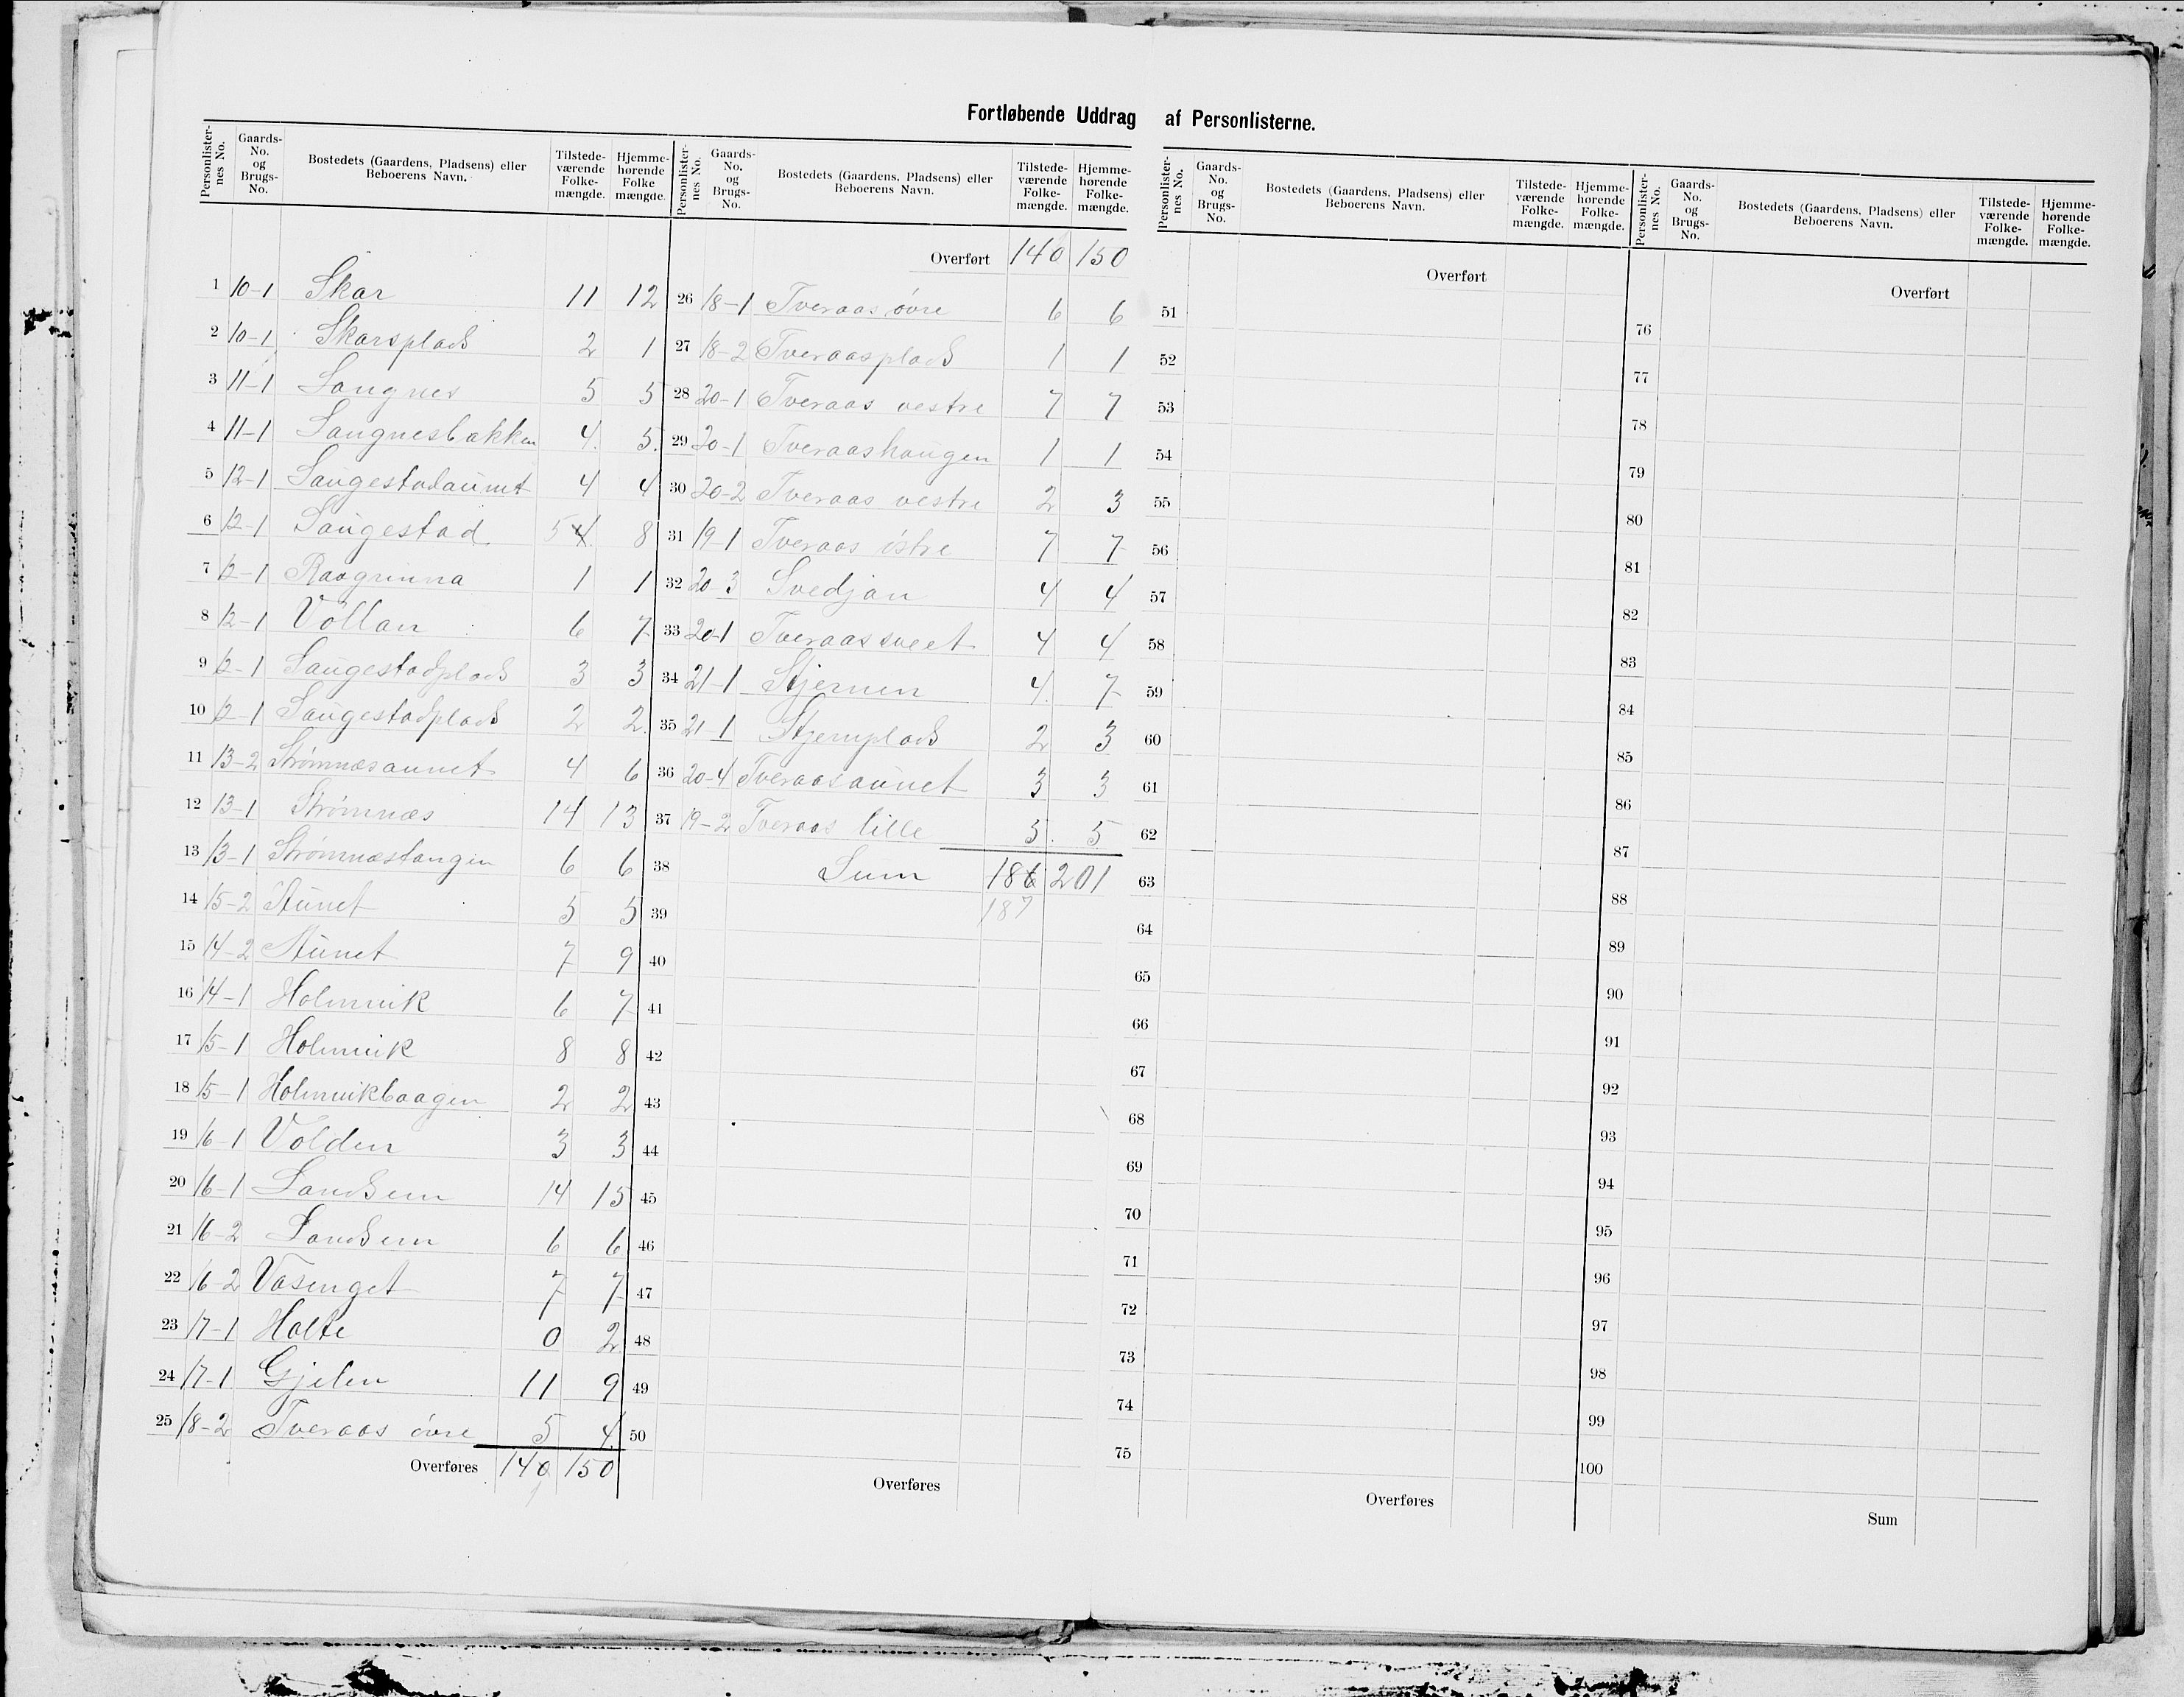 Fortløbende Uddrag af Personlisterne.
Personlisternes No. Gaards-No. og Brugs-No. Bostedets (Gaardens, Pladsens) eller Beboerens Navn. Tilstedeværende Folkemængde. Hjemmehørende Folkemængde.
1 10-1 Skar 11 12
2 10-1 Skarsplads 2 1
3 11-1 Saugnes 5 5
4 11-1 Saugnesbakken 4 5
5 12-1 Saugestadaunet 4 4
6 12-1 Saugestad 5 4 8
7 12-1 Raagrinna 1 1
8 12-1 Vollan 6 7
9 12-1 Saugestadplads 3 3
10 12-1 Saugestadplads 2 2
11 13-2 Strømnæsaunet 4 6
12 13-1 Strømnæs 14 13
13 13-1 Strømnæstangen 6 6
14 15-2 Aunet 5 5
15 14-2 Aunet 7 9
16 14-1 Holmvik 6 7
17 15-1 Holmvik 8 8
18 15-1 Holmvikbaagen 2 2
19 16-1 Volden 3 3
20 16-1 Landsem 14 15
21 16-2 Landsem 6 6
22 16-2 Vasenget 7 7
23 17-1 Holte 0 2
24 17-1 Gjelen 11 9
25 18-2 Tveraas øvre 5 4
Overføres 140 150
1
Personlisternes No. Gaards-No. og Brugs-No. Bostedets (Gaardens, Pladsens) eller Beboerens Navn. Tilstedeværende Folkemængde. Hjemmehørende Folkemængde.
Overført 140 150
26 18-1 Tveraas øvre 6 6
27 18-2 Tveraasplads 1 1
28 20-1 Tveraas vestre 7 7
29 20-1 Tveraashaugen 1 1
30 20-2 Tveraas vestre 2 3
31 19-1 Tveraas østre 7 7
32 20-3 Svedjan 4 4
33 20-1 Tveraassveet 4 4
34 21-1 Stjernen 4 7
35 21-1 Stjernplads 2 3
36 20-4 Tveraasaunet 3 3
37 19-2 Tveraas lille 5 5
38 Sum 186 201
39 187
40
41
42
43
44
45
46
47
48
49
50
Overføres
Personlisternes No. Gaards-No. og Brugs-No. Bostedets (Gaardens, Pladsens) eller Beboerens Navn. Tilstedeværende Folkemængde. Hjemmehørende Folkemængde.
Overført
51
52
53
54
55
56
57
58
59
60
61
62
63
64
65
66
67
68
69
70
71
72
73
74
75
Overføres
Personlisternes No. Gaards-No. og Brugs-No. Bostedets (Gaardens, Pladsens) eller Beboerens Navn. Tilstedeværende Folkemængde. Hjemmehørende Folkemængde.
Overført
76
77
78
79
80
81
82
83
84
85
86
87
88
89
90
91
92
93
94
95
96
97
98
99
100
Sum